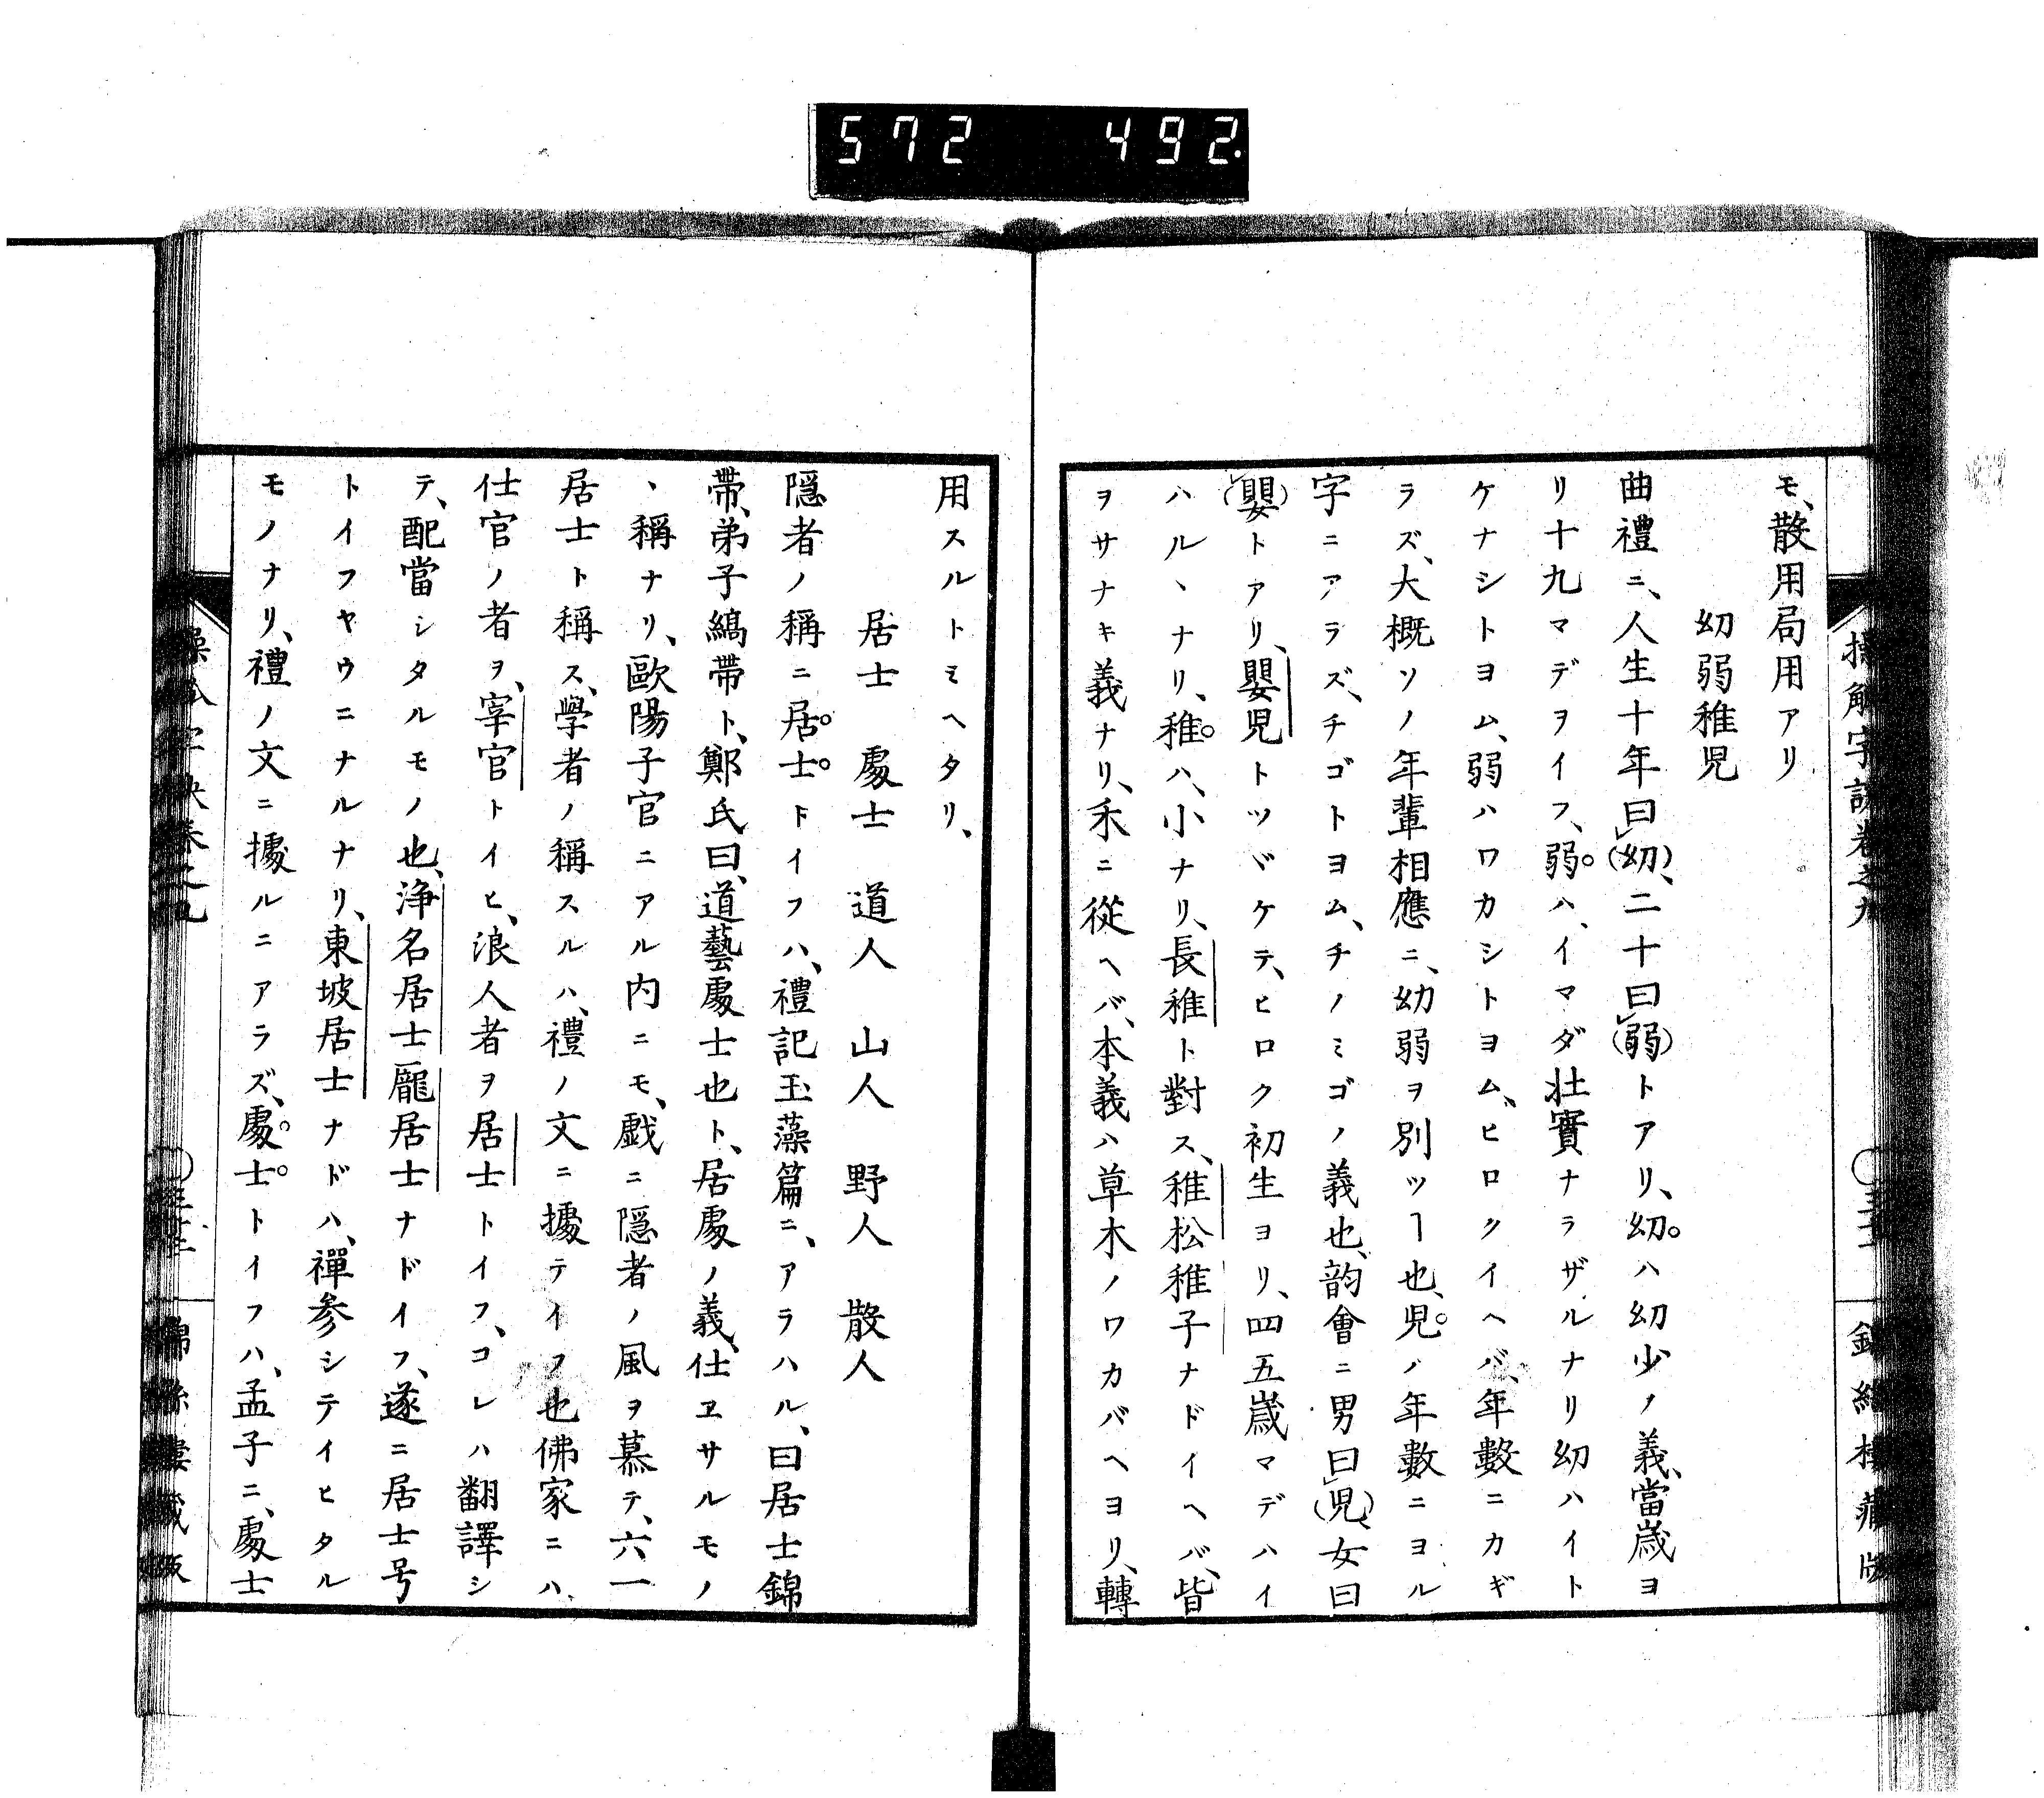 572 492.
モ、散用局用アリ
幼弱稚児
曲禮ニ、人生十年曰(幼)、二十曰(弱)トアリ、幼。ハ幼少ノ義、當歳ヨ
リ十九マデヲイフ、弱。ハ、イマダ壮實ナラザルナリ幼ハイト
ケナシトヨム、弱ハワカシトヨム、ヒロクイヘバ、年數ニカギ
ラズ、大概ソノ年輩相應ニ、幼弱ヲ別ツヿ也、児。ハ年數ニヨル
字ニアラズ、チゴトヨム、チノミゴノ義也、韵會ニ男曰(児)、女曰
(嬰)トアリ、嬰児トツヾケテ、ヒロク初生ヨリ、四五歳マデハイ
ハルヽナリ、稚。ハ、小ナリ、長稚ト對ス、稚松稚子ナドイヘバ、皆
ヲサナキ義ナリ、禾ニ從ヘバ、本義ハ草木ノワカバヘヨリ、轉
用スルトミヘタリ、
居士 處士 道人 山人 野人 散人
隠者ノ稱ニ居。士。ドイフハ、禮記玉藻篇ニ、アラハル、曰居士錦
帶、弟子縞帶ト、鄭氏曰、道藝處士也ト、居處ノ義、仕ヱサルモノ
ヽ稱ナリ、歐陽子官ニアル内ニモ、戯ニ隠者ノ風ヲ慕テ、六一
居士ト稱ス、學者ノ稱スルハ、禮ノ文ニ據テイフ也佛家ニハ、
仕官ノ者ヲ、宰官トイヒ、浪人者ヲ居士トイフ、コレハ翻譯シ
テ、配當シタルモノ也、浄名居士龐居士ナドイフ、遂ニ居士号
トイフヤウニナルナリ、東坡居士ナドハ、禪参シテイヒタル
モノナリ、禮ノ文ニ據ルニアラズ、處。士。トイフハ、孟子ニ、處士